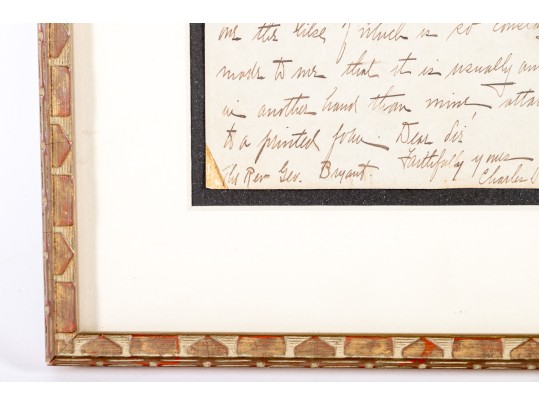 one the like of which is so
made to me that it is usually
in another hand than mine,
to a printed form. Dear Sir
Faithfully yours
The Rev Geo. Bryant.
Charles